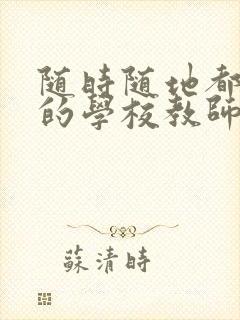 随時随地都
的學校教師
蘇清時